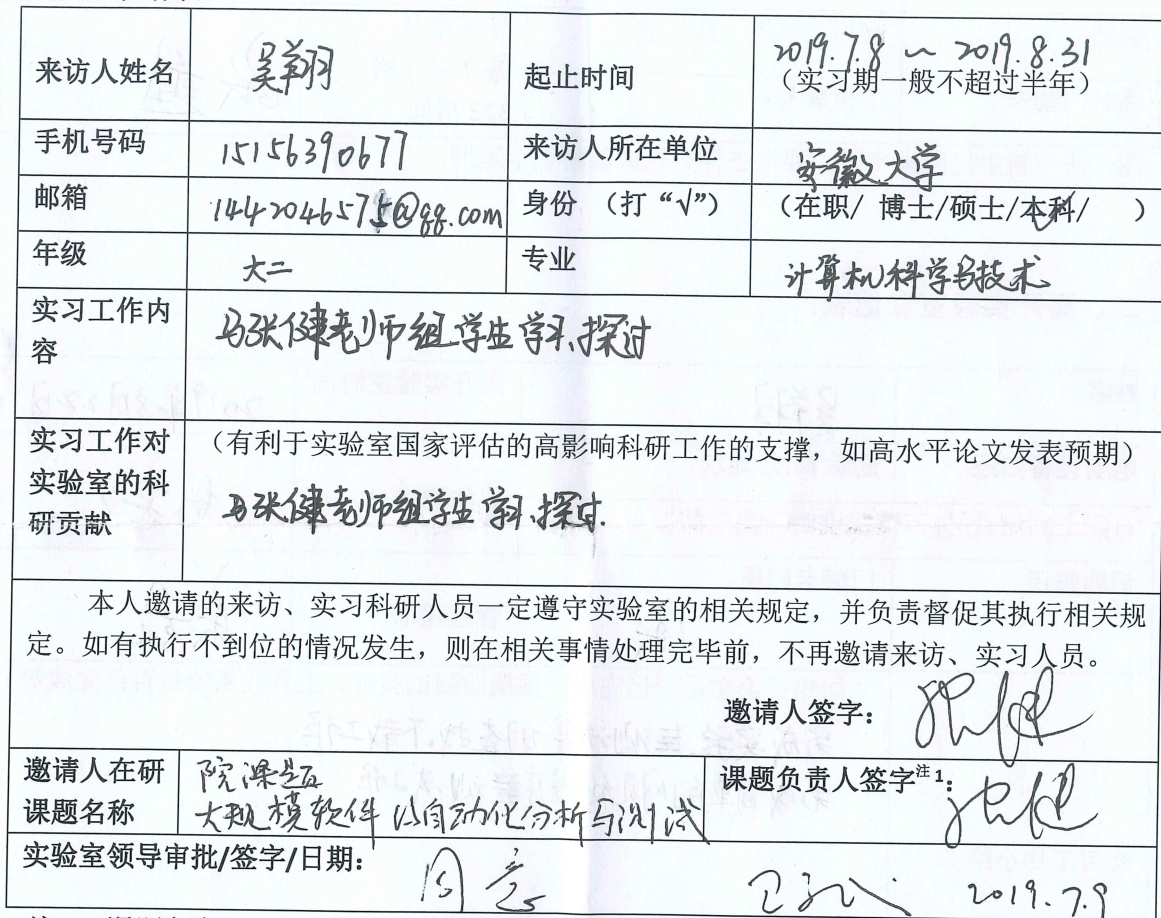 来访人姓名 吴翔 起止时间 2019.7.8 ~ 2019.8.31
(实习期一般不超过半年)
手机号码 15156390677 来访人所在单位 安徽大学
邮箱 1442046575@qq.com 身份 (打“√”) (在职/ 博士/硕士/本科/ )
年级 大二 专业 计算机科学与技术
实习工作内
容
与张健老师组学生学习、探讨
实习工作对
实验室的科
研贡献
(有利于实验室国家评估的高影响科研工作的支撑,如高水平论文发表预期)
与张健老师组学生学习、探讨
本人邀请的来访、实习科研人员一定遵守实验室的相关规定,并负责督促其执行相关规
定。如有执行不到位的情况发生,则在相关事情处理完毕前,不再邀请来访、实习人员。
邀请人签字: 张健
邀请人在研
课题名称
院课题
大规模软件的自动化分析与测试
课题负责人签字注1: 张健
实验室领导审批/签字/日期: 2019.7.9